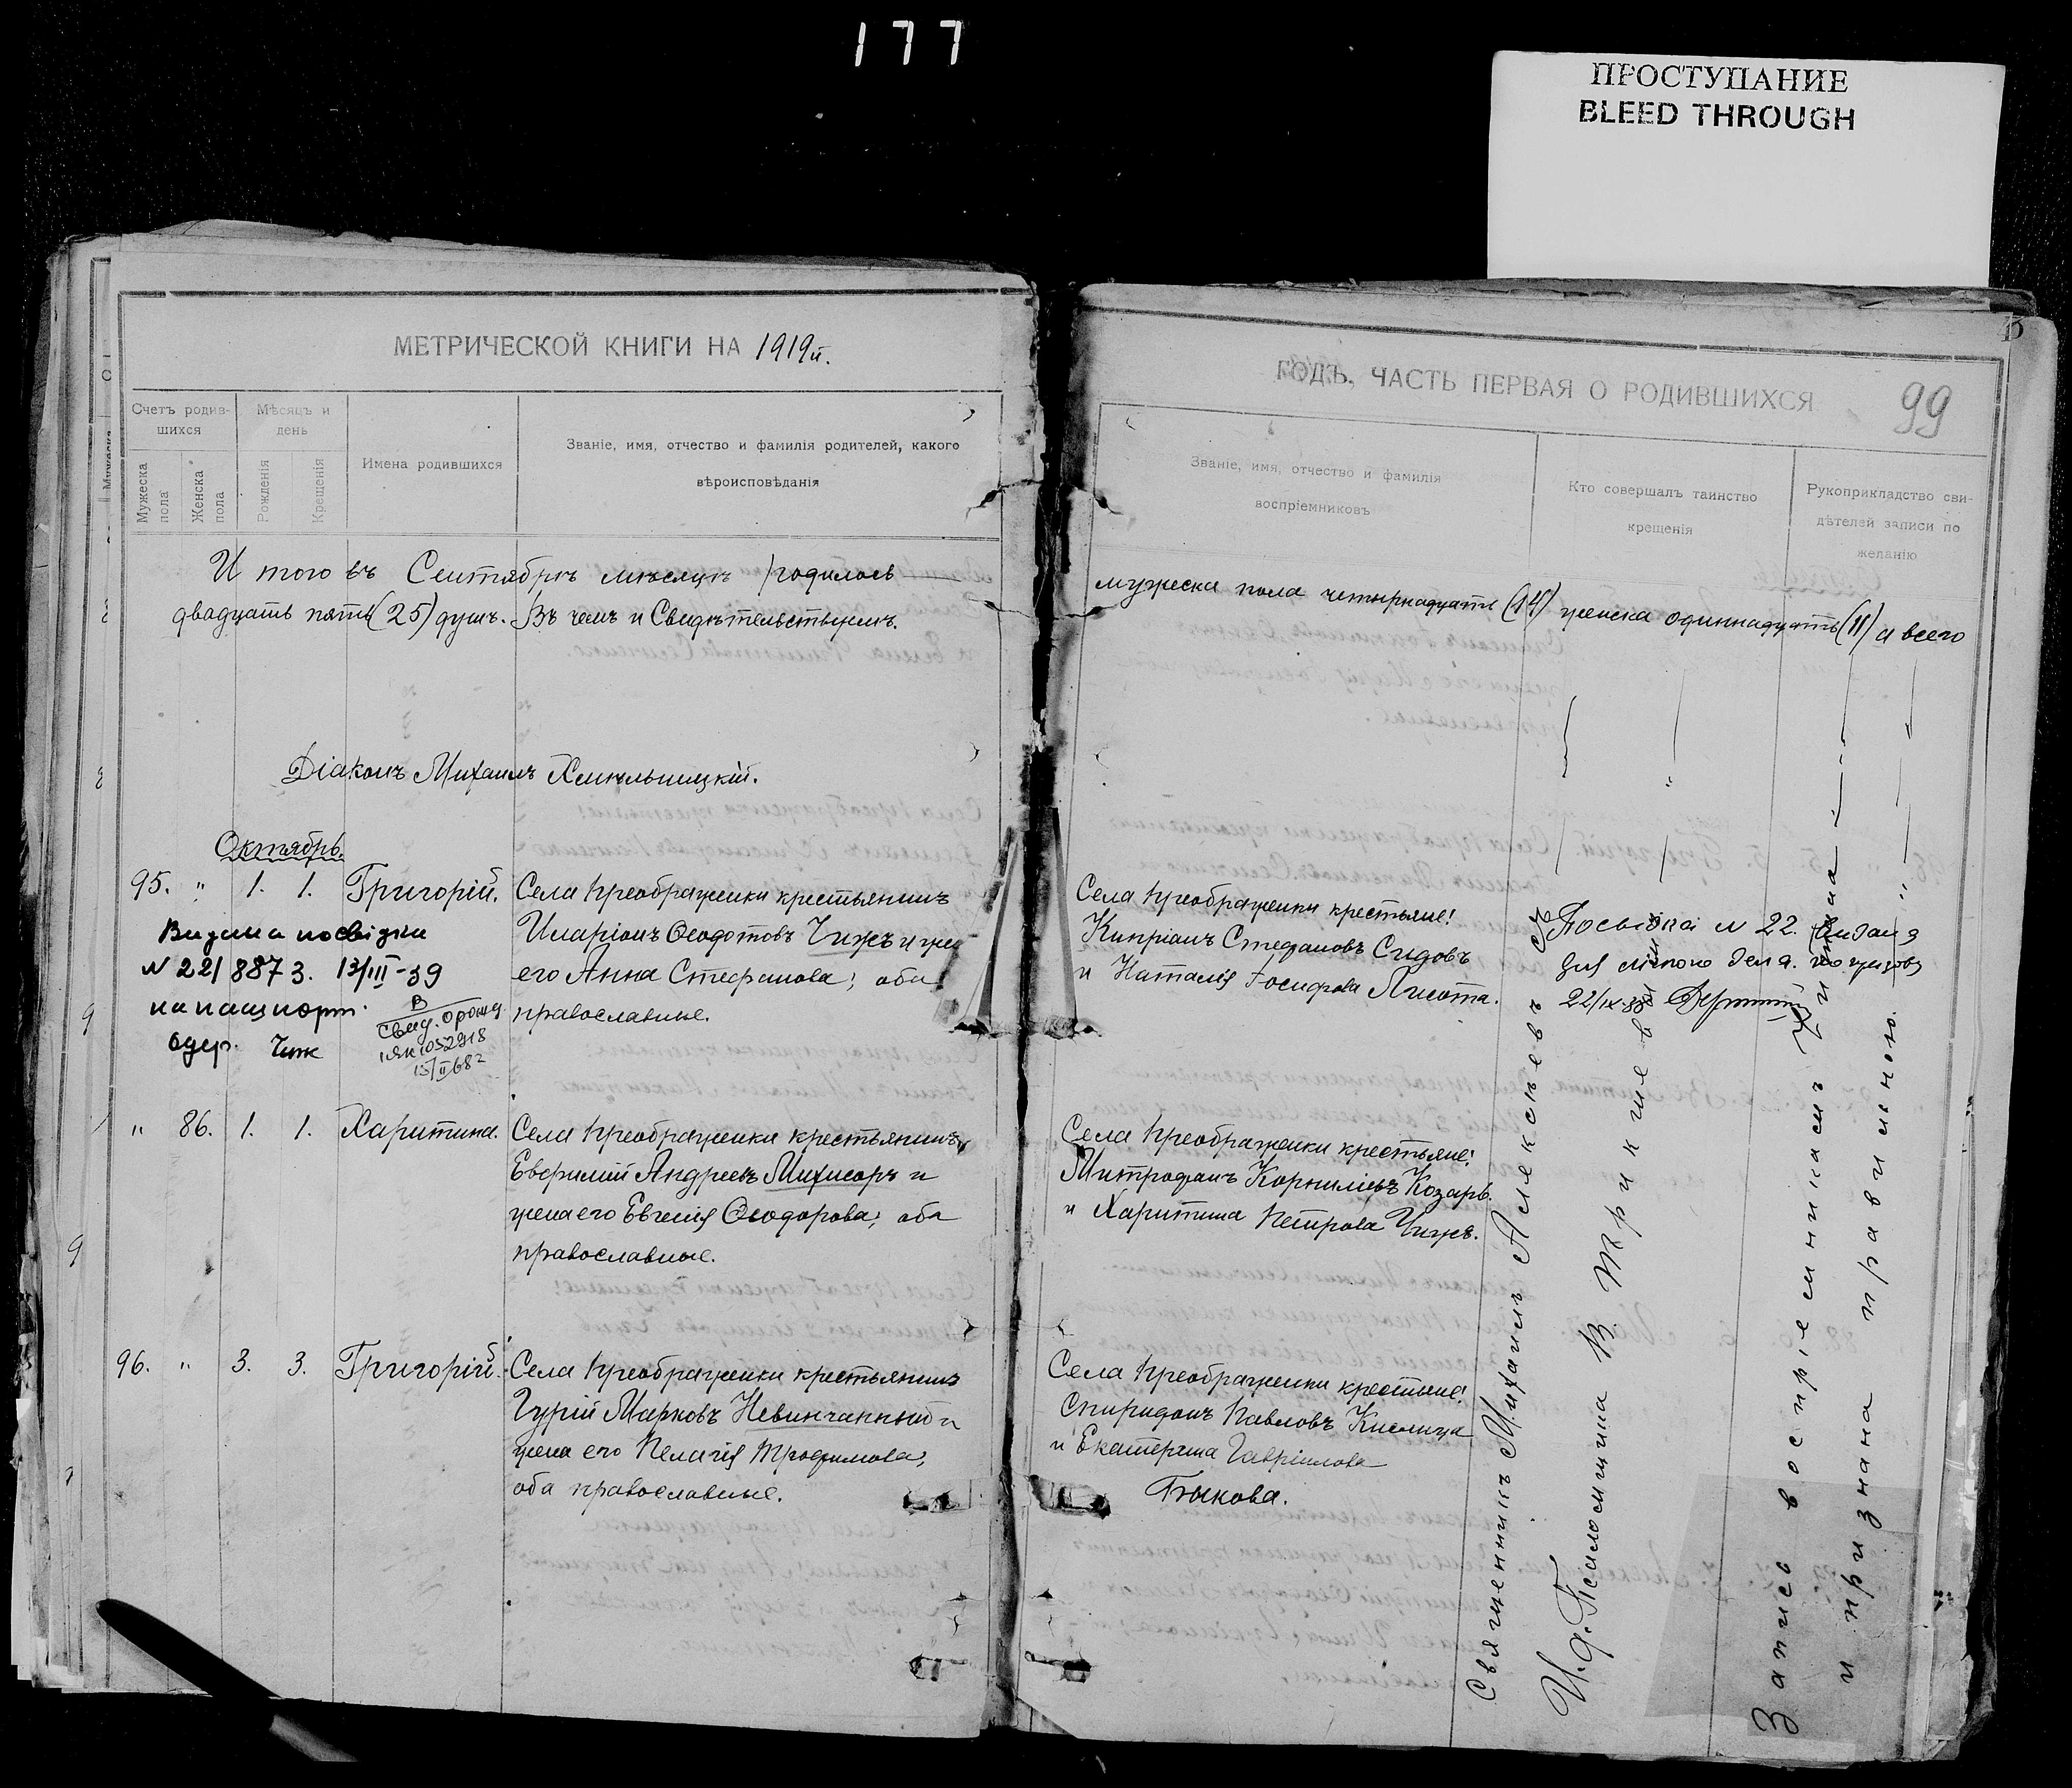 177
ПРОСТУПАНИЕ
BLEED THROUGH
МЕТРИЧЕСКОЙ КНИГИ НА 1919й.
Счетъ родив-
шихся
Мѣсяцъ и
день
Мужеска
пола
Женска
пола
Рожденія
Крещенія
Имена родившихся
Званіе, имя, отчество и фамилія родителей, какого
вѣроисповѣданія
И того въ Сентябрѣ мѣсяцѣ родилось
двадцать пять (25) душъ. Въ чемъ и Свидѣтельствуемъ.
Діаконъ Михаилъ Хмѣльницкій.
Октябрь.
95. " 1. 1. Григорій. Села Преображенки крестьянинъ
Иларіонъ Ѳеодотовъ Чижъ и жена
его Анна Стефанова; оба
православные.
Видана посвідка
N 221 8873. 13/III-39
на пашпорт.
одер. Чиж
В
Свид. о рожд.
15/II 68г
" 86. 1. 1. Харитина. Села Преображенки крестьянинъ
Евфимій Андреевъ Михисоръ и
жена его Евгенія Ѳеодорова; оба
православные.
96. " 3. 3. Григорій. Села Преображенки крестьянинъ
Гурій Марковъ Невинчанный и
жена его Пелагія Трофимова;
оба православные.
ГОДЪ, ЧАСТЬ ПЕРВАЯ О РОДИВШИХСЯ
99
Званіе, имя, отчество и фамилія
воспріемниковъ
Кто совершалъ таинство
крещенія
Рукоприкладство сви-
дѣтелей записи по
желанію
мужеска пола четырнадцать (14) женска одиннадцать (11) а всего
Села Преображенки крестьяне:
Кипріанъ Стефановъ Сидовъ
и Наталія Іосифова Лисота.
N 22. видана
22/IX-38
Села Преображенки крестьяне:
Митрофанъ Корниліевъ Козаръ.
и Харитина Петрова Чижъ.
Села Преображенки крестьяне:
Спиридонъ Павловъ Кислица
и Екатерина Гавріилова
Быкова.
Священникъ Михаилъ Алексѣевъ
И.д. Псаломщика В. Трикшевъ
Запись воспріемникамъ читана
и признана правильною.